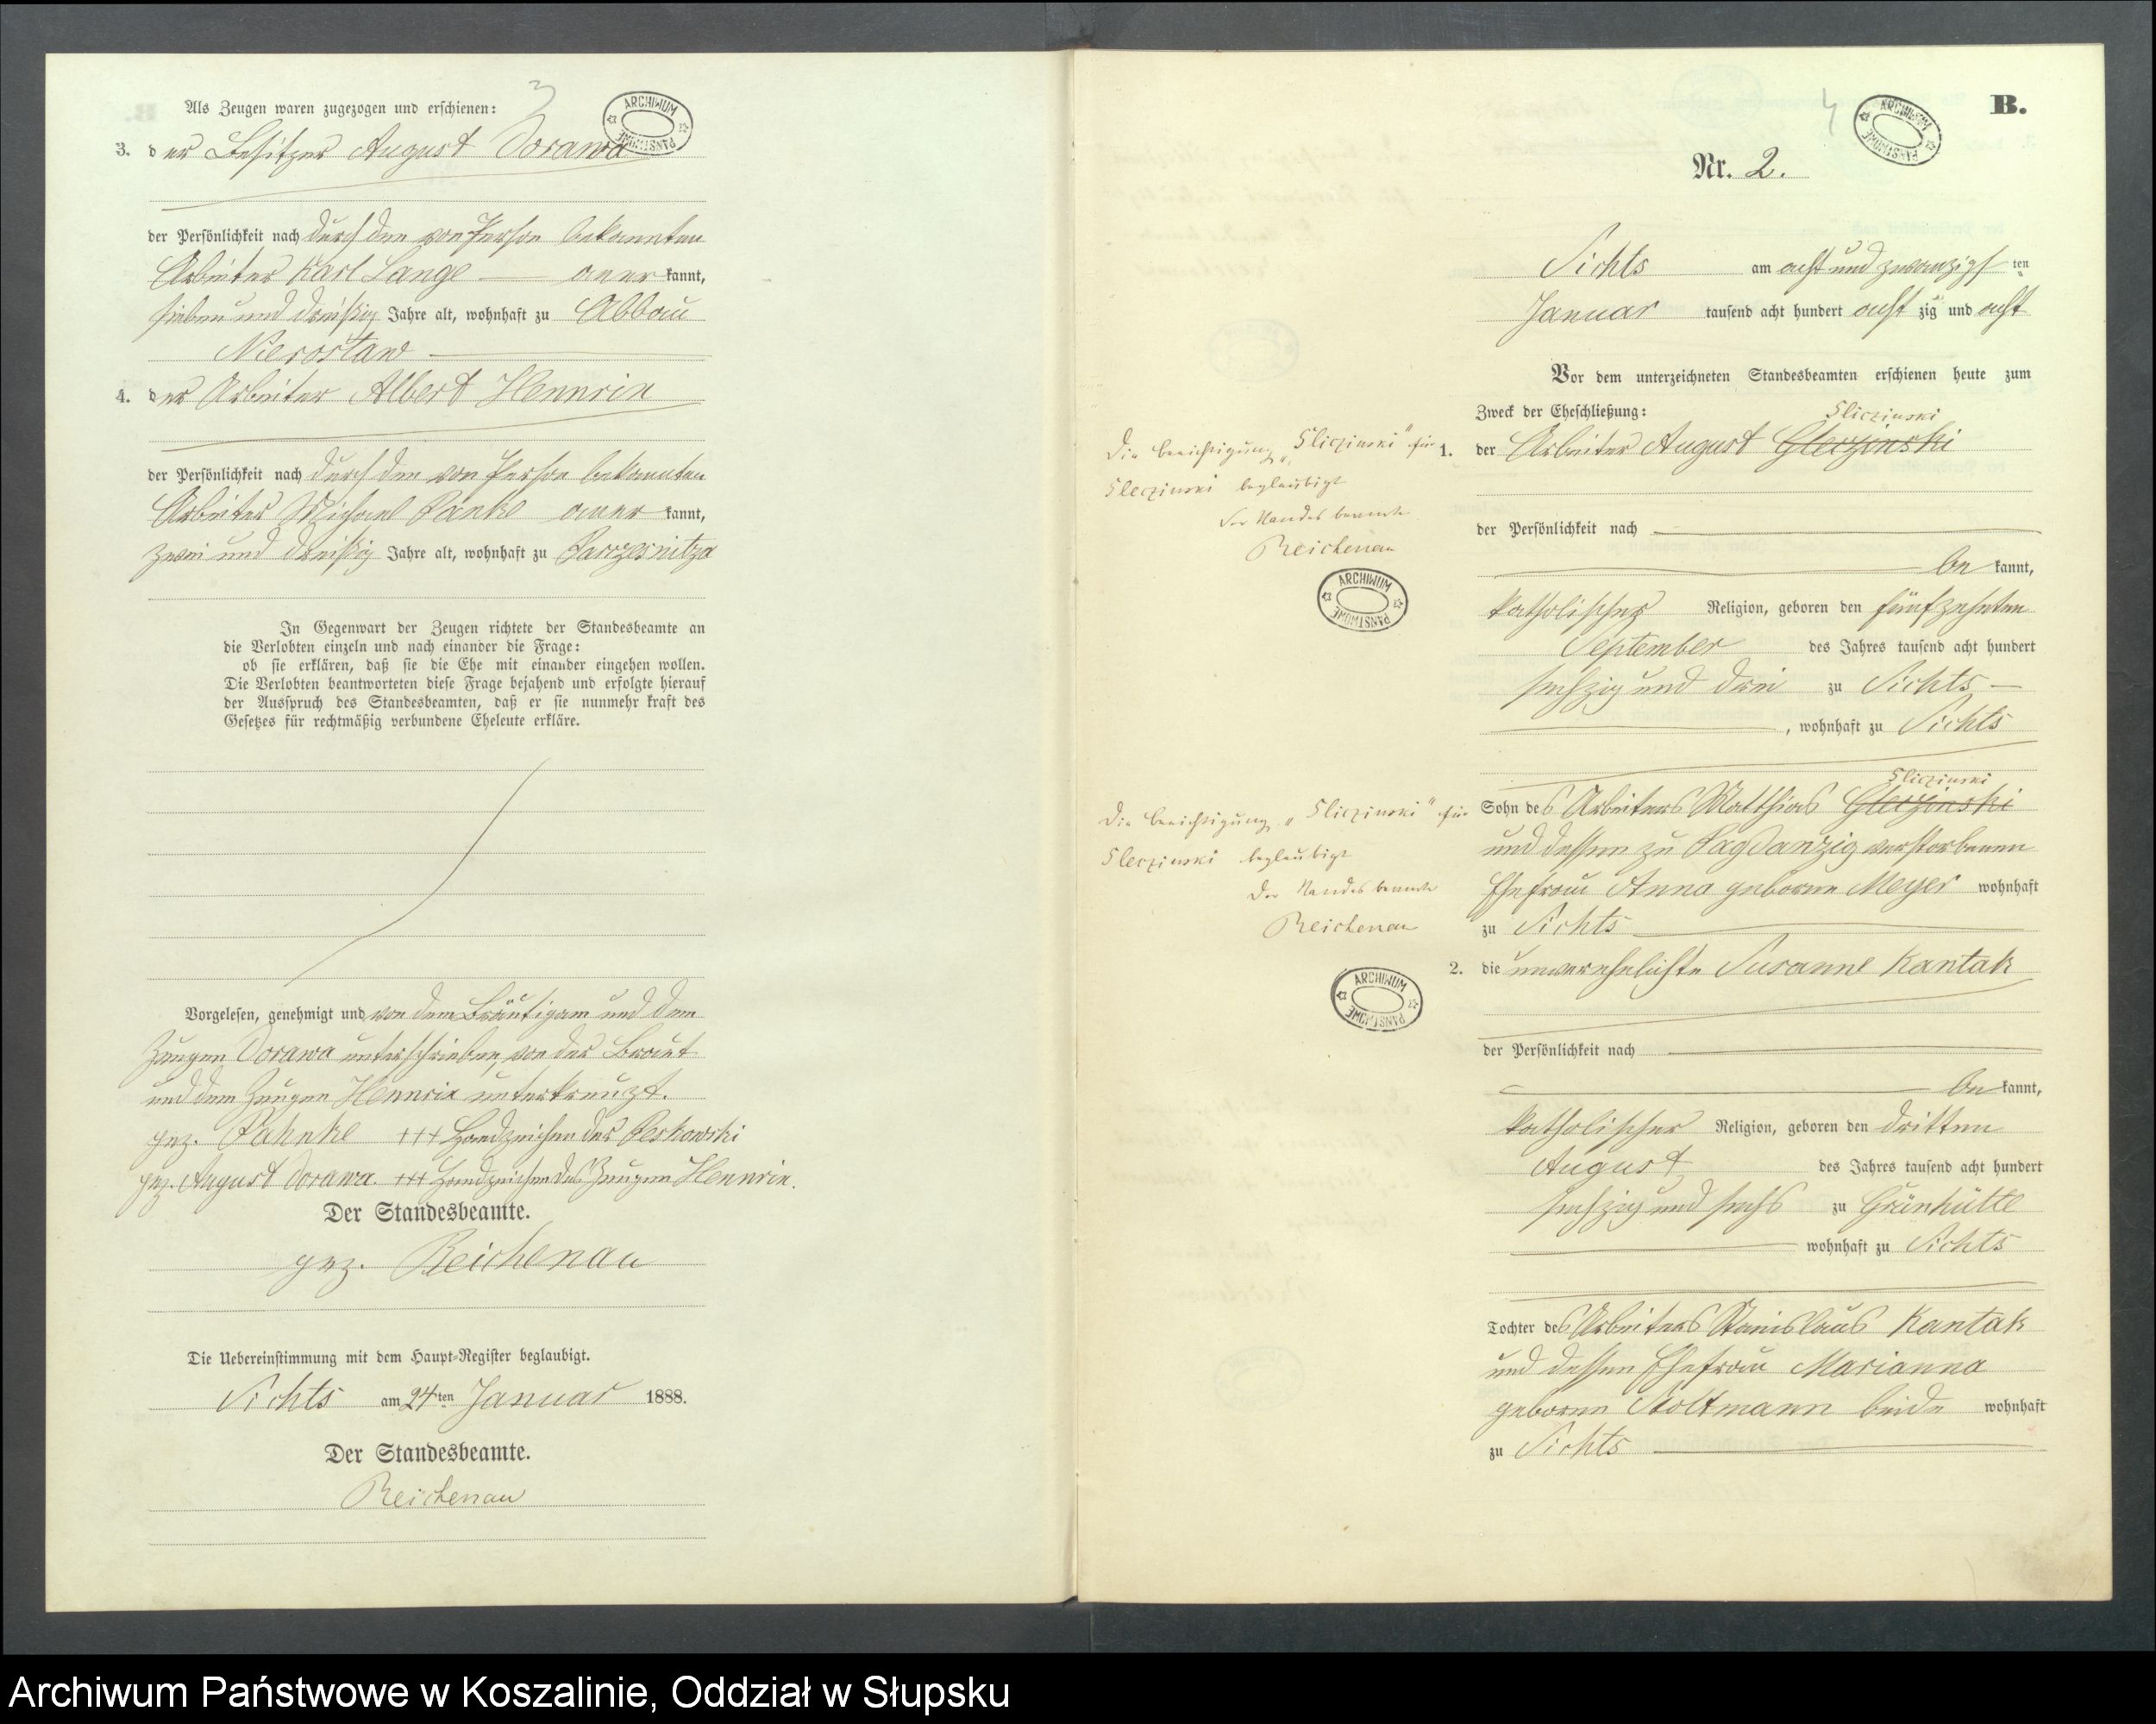 3
ARCHIWUM PAŃSTWOWE
Als Zeugen waren zugezogen und erschienen:
3. der Besitzer August Dorawa
der Persönlichkeit nach durch den von Person bekannten
Arbeiter Karl Lange anerkannt,
sieben und dreißig Jahre alt, wohnhaft zu Abbau
Nierostaw
4. der Arbeiter Albert Hennrix
der Persönlichkeit nach durch den von Person bekannten
Arbeiter Michael Panke anerkannt,
zwei und dreißig Jahre alt, wohnhaft zu
In Gegenwart der Zeugen richtete der Standesbeamte an
die Verlobten einzeln und nach einander die Frage:
ob sie erklären, daß sie die Ehe mit einander eingehen wollen.
Die Verlobten beantworteten diese Frage bejahend und erfolgte hierauf
der Ausspruch des Standesbeamten, daß er sie nunmehr kraft des
Gesetzes für rechtmäßig verbundene Eheleute erkläre.
Vorgelesen, genehmigt und von dem Bräutigam und dem
Zeugen Dorawa unterschrieben, von der Braut
und dem Zeugen Hennrix unterkreuzt.
gez. Pahnke +++ Handzeichen der Peskowski
gez. August Dorawa. +++ Handzeichen des Zeugen Hennrix.
Der Standesbeamte.
gez. Reichenau
Die Uebereinstimmung mit dem Haupt-Register beglaubigt.
Sichts am 24ten Januar 1888.
Der Standesbeamte.
Reichenau
4
ARCHIWUM PAŃSTWOWE
B.
Nr. 2.
Sichts am acht und zwanzigsten
Januar tausend acht hundert achtzig und acht
Vor dem unterzeichneten Standesbeamten erschienen heute zum
Zweck der Eheschließung:
Sliczinski
1. der Arbeiter August Sleczinski
der Persönlichkeit nach
bekannt,
katholischer Religion, geboren den fünfzehnten
September des Jahres tausend acht hundert
sechzig und drei zu Sichts
, wohnhaft zu Sichts
Sliczinski
Sohn des Arbeiters Matthias Sleczinski
und dessen zu Pagdanzig verstorbenen
Ehefrau Anna geborne Meyer wohnhaft
zu Sichts
2. die unverehelichte Susanne Kantak
der Persönlichkeit nach
bekannt,
katholischer Religion, geboren den dritten
August des Jahres tausend acht hundert
sechzig und sechs zu Grünhütte
wohnhaft zu Sichts
Tochter des Arbeiters Stanislaus Kantak
und dessen Ehefrau Marianna
geborne Stoltmann beide wohnhaft
zu Sichts
Die Berichtigung „Sliczinski" für
Sleczinski beglaubigt
Der Standesbeamte
Reichenau
ARCHIWUM PAŃSTWOWE
Die Berichtigung „Sliczinski" für
Sleczinski beglaubigt
Der Standesbeamte
Reichenau
ARCHIWUM PAŃSTWOWE
Archiwum Państwowe w Koszalinie, Oddział w Słupsku